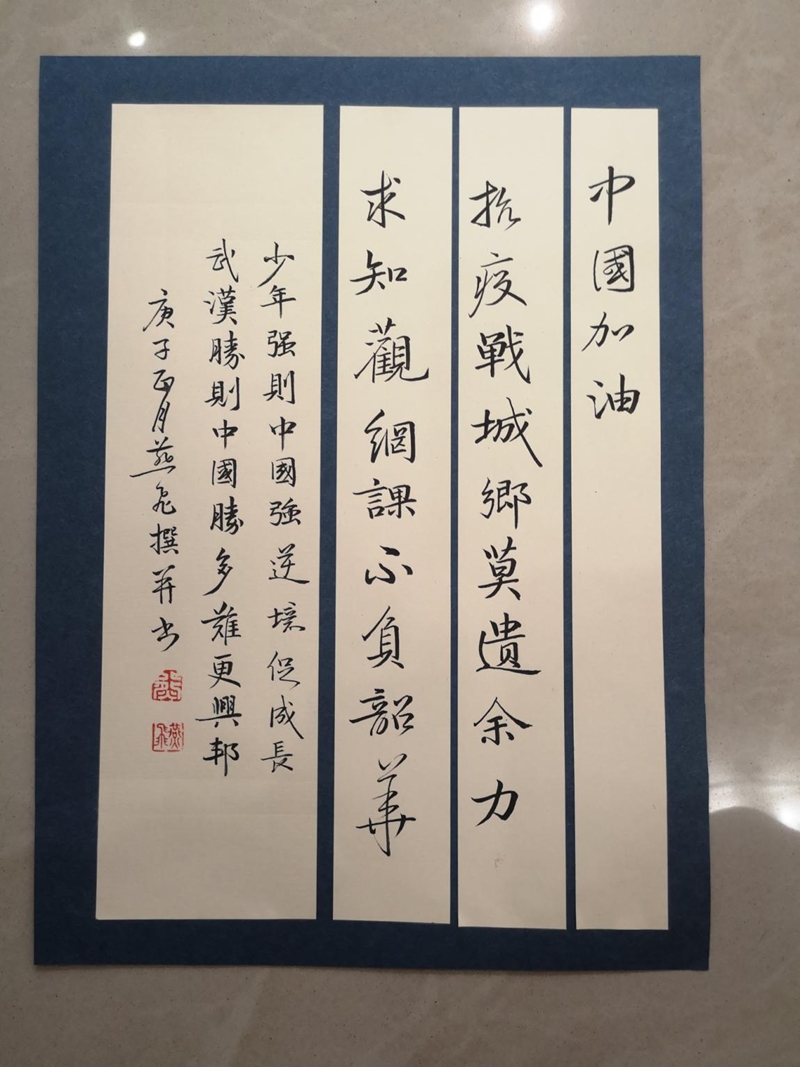 中國加油
抗疫戰城鄉莫遺余力
求知觀網課不負韶華
少年强則中國強逆境促成長
武漢勝則中國勝多難更興邦
庚子正月燕飛撰并书
燕飛